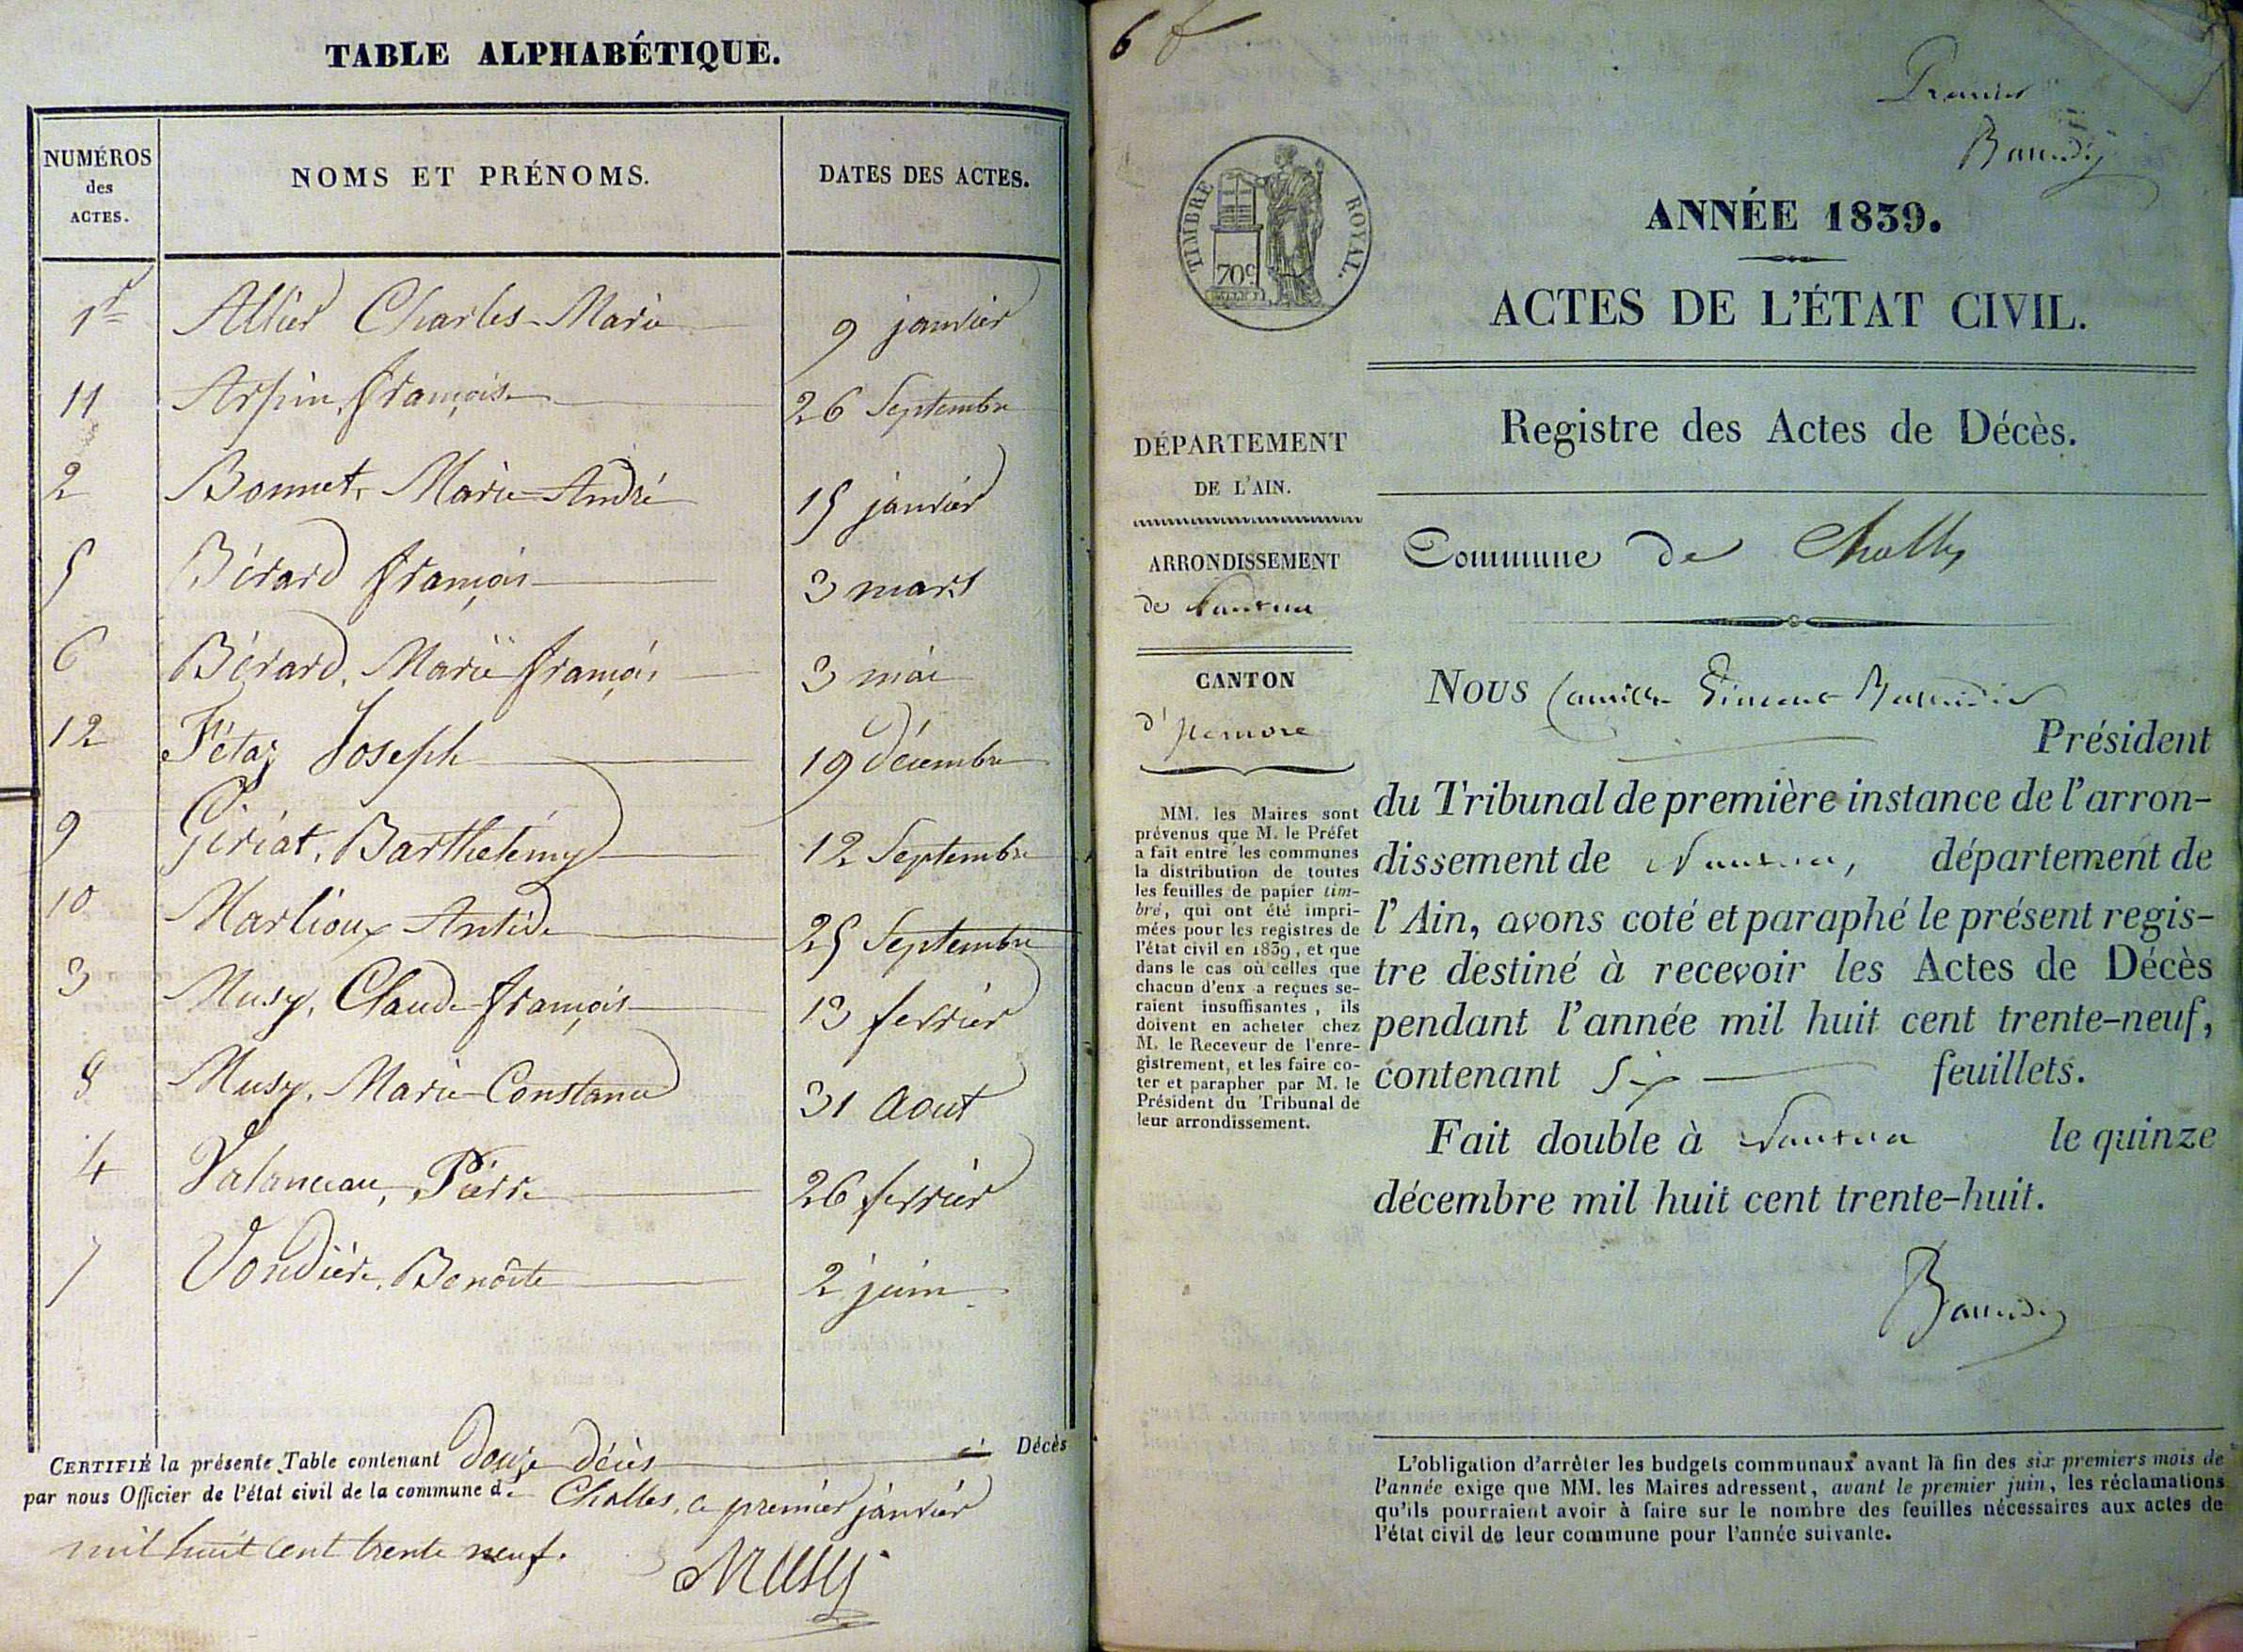 TABLE ALPHABÉTIQUE.
NUMÉROS des ACTES.
NOMS ET PRÉNOMS.
DATES DES ACTES.
1er Allier Charles-Marie 9 janvier
11 Arpin, françois 26 Septembre
2 Bonnet, Marie-André 15 janvier
5 Bérard françois 3 mars
6 Bérard, Marie françois 3 mai
12 Fétaz Joseph 19 décembre
9 Giriat, Barthelémy 12 Septembre
10 Marlioux Antide 25 Septembre
3 Musy, Claude françois 13 fevrier
8 Musy, Marie-Constance 31 Aout
4 Valanceau, Pierre 26 fevrier
7 Vondière, Benoîte 2 juin
CERTIFIÉ la présente Table contenant douze décès Décès
par nous Officier de l'état civil de la commune de Challes, ce premier janvier
mil huit cent trente neuf.
Musy
6
Premier
TIMBRE ROYAL.
70c
ANNÉE 1839.
ACTES DE L'ÉTAT CIVIL.
Registre des Actes de Décès.
Commune de Challes
DÉPARTEMENT
DE L'AIN.
ARRONDISSEMENT
de Nantua
CANTON
d'
MM. les Maires sont
prévenus que M. le Préfet
a fait entre les communes
la distribution de toutes
les feuilles de papier tim-
bré, qui ont été impri-
mées pour les registres de
l'état civil en 1839, et que
dans le cas où celles que
chacun d'eux a reçues se-
raient insuffisantes, ils
doivent en acheter chez
M. le Receveur de l'enre-
gistrement, et les faire co-
ter et parapher par M. le
Président du Tribunal de
leur arrondissement.
Nous Camille
Président
du Tribunal de première instance de l'arron-
dissement de Nantua, département de
l'Ain, avons coté et paraphé le présent regis-
tre destiné à recevoir les Actes de Décès
pendant l'année mil huit cent trente-neuf,
contenant Six feuillets.
Fait double à Nantua le quinze
décembre mil huit cent trente-huit.
L'obligation d'arrêter les budgets communaux avant la fin des six premiers mois de
l'année exige que MM. les Maires adressent, avant le premier juin, les réclamations
qu'ils pourraient avoir à faire sur le nombre des feuilles nécessaires aux actes de
l'état civil de leur commune pour l'année suivante.